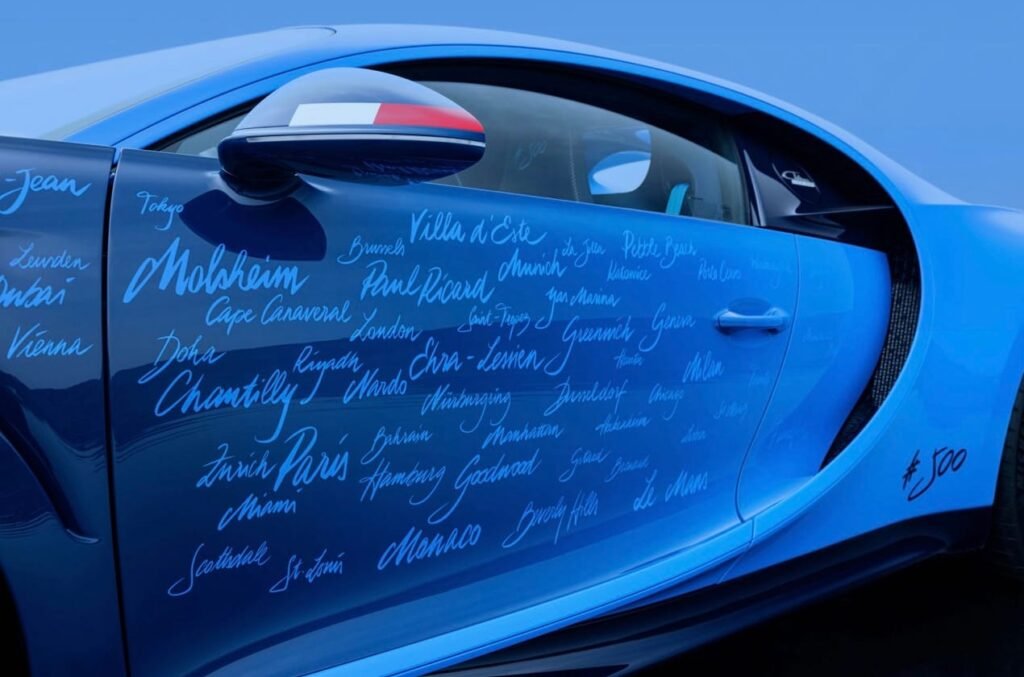 -Jean
Leusden
Dubai
Vienna
Tokyo
Molsheim
Brussels
Villa d'Este
La Jolla
Pebble Beach
Munich
Katowice
Porto Cervo
Paul Ricard
Yas Marina
Cape Canaveral
London
Saint-Tropez
Greenwich
Geneva
Doha
Riyadh
Ehra-Lessien
Milan
Chantilly
Nardo
Nürburgring
Düsseldorf
Chicago
Zurich
Paris
Bahrain
Manhattan
Hamburg
Goodwood
Miami
Monaco
Beverly Hills
Le Mans
Scottsdale
St. Louis
#500